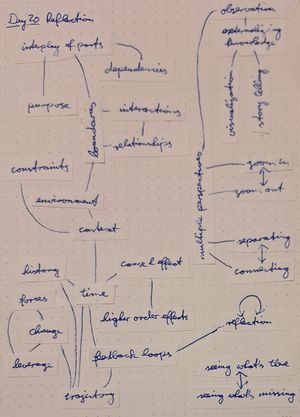 Day 20 Reflection
observation
externalizing
knowledge
interplay of parts
dependencies
visualization
story telling
purpose
boundaries
interactions
relationships
multiple perspectives
constraints
zoom in
zoom out
environment
context
separating
connecting
history
cause & effect
time
forces
higher order effects
change
reflection
leverage
feedback loops
seeing what's there
trajectory
seeing what's missing